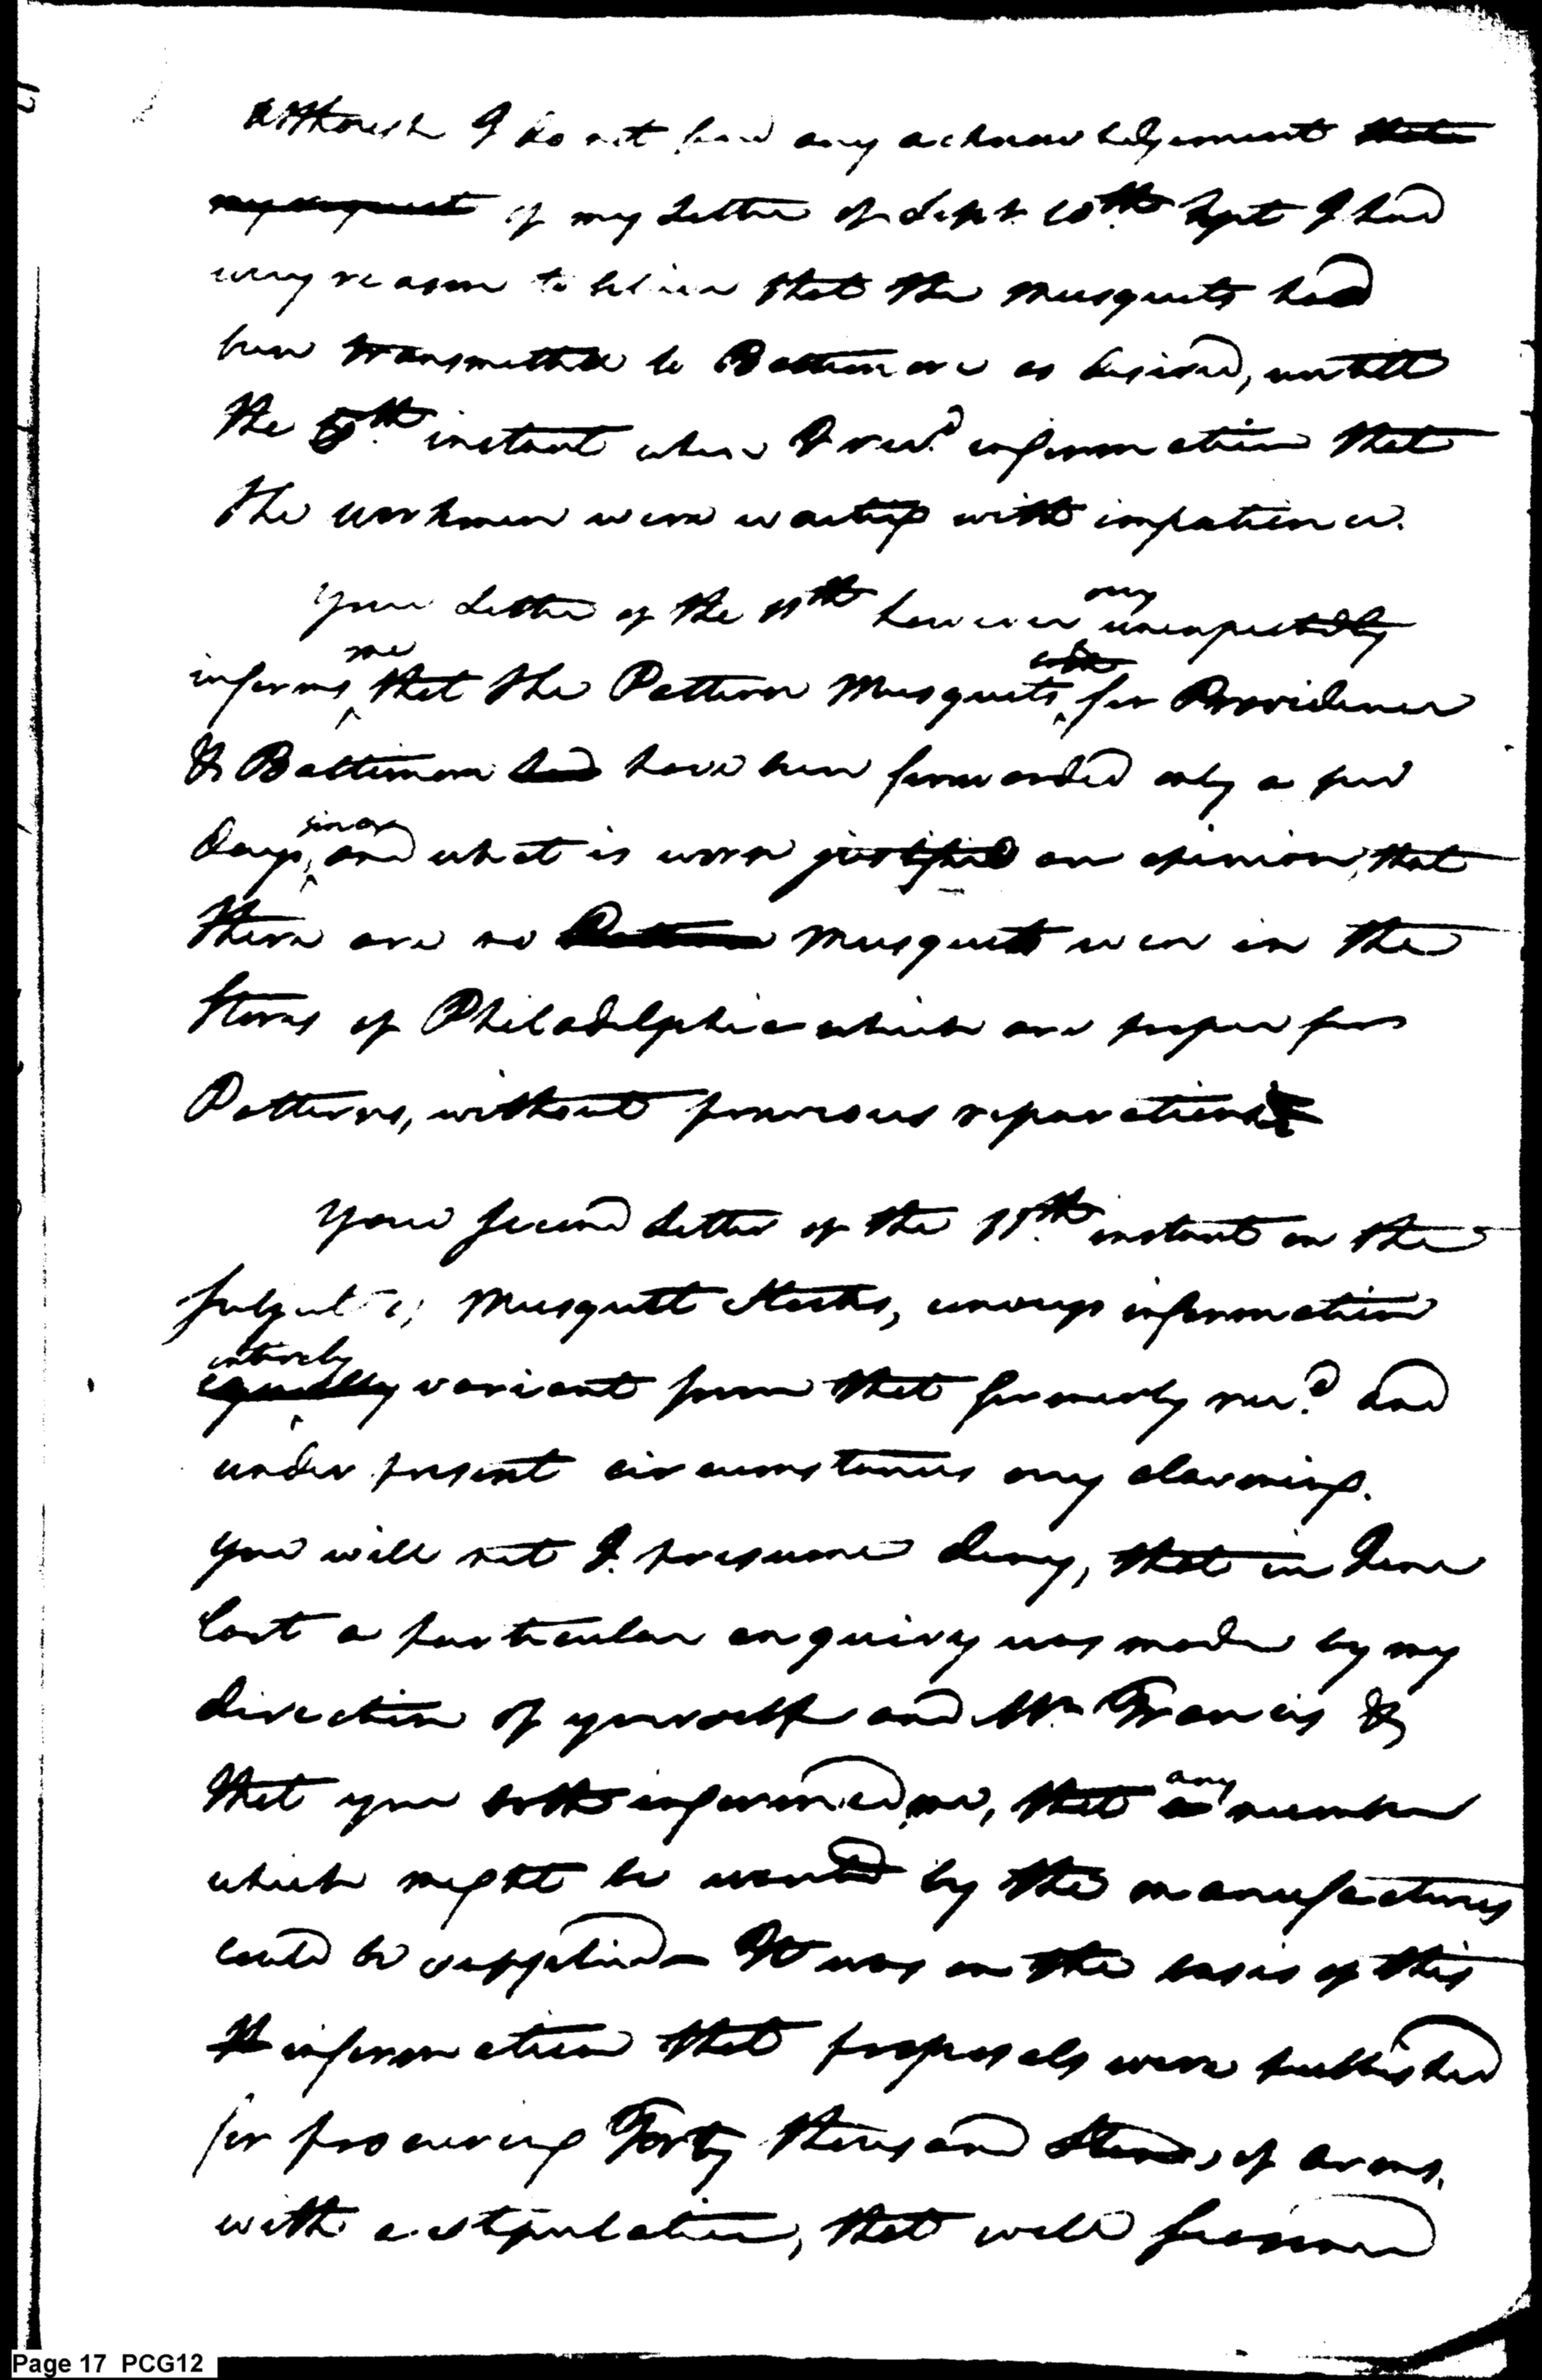 although I do not find any acknowledgement
of my Letter of Sept 10th I had
every reason to believe that the musquets had
been transmitted to Baltimore as desired, untill
the 5th instant when I recd information that
the workmen were waiting with impatience.
Your Letter of the 11th however only unexpectedly
informs me that the Pattern Musquets for Providence
& Baltimore had have been forwarded only a few
days since, and what is worse justified an opinion, that
there are no Pattern musquets even in the
Stores of Philadelphia which are proper for
Patterns, without previous reparations
Your second Letter of the 11th instant on the
subject of Musquet Stocks, conveys information
equally entirely variant from that formerly recd and
under present circumstances very alarming.
you will not I presume deny, that in June
last a particular enquiry was made by my
direction of yourself and Mr Francis &
that you both informed me, that a any number
which might be wanted by the manufactures
could be supplied – It was on the basis of this
information that proposals were published
for procuring Forty thousand Stands of arms,
with a stipulation, that well seasoned
Page 17 PCG12